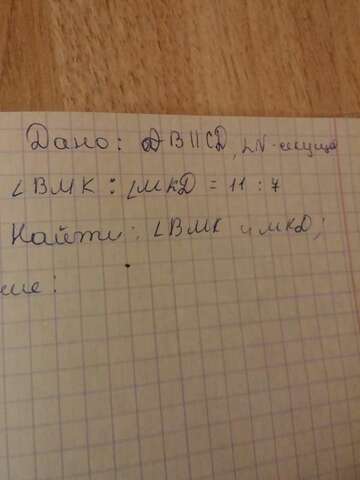 Дано: АВ||CD, LN-секуща
∠BMK : ∠MKD = 11 : 7
Найти: ∠BMK и MKD;
ше: